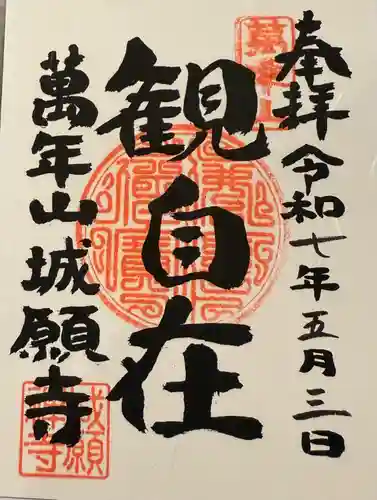 奉拝 令和七年五月三日
觀自在
萬年山城願寺
萬年山
城願寺